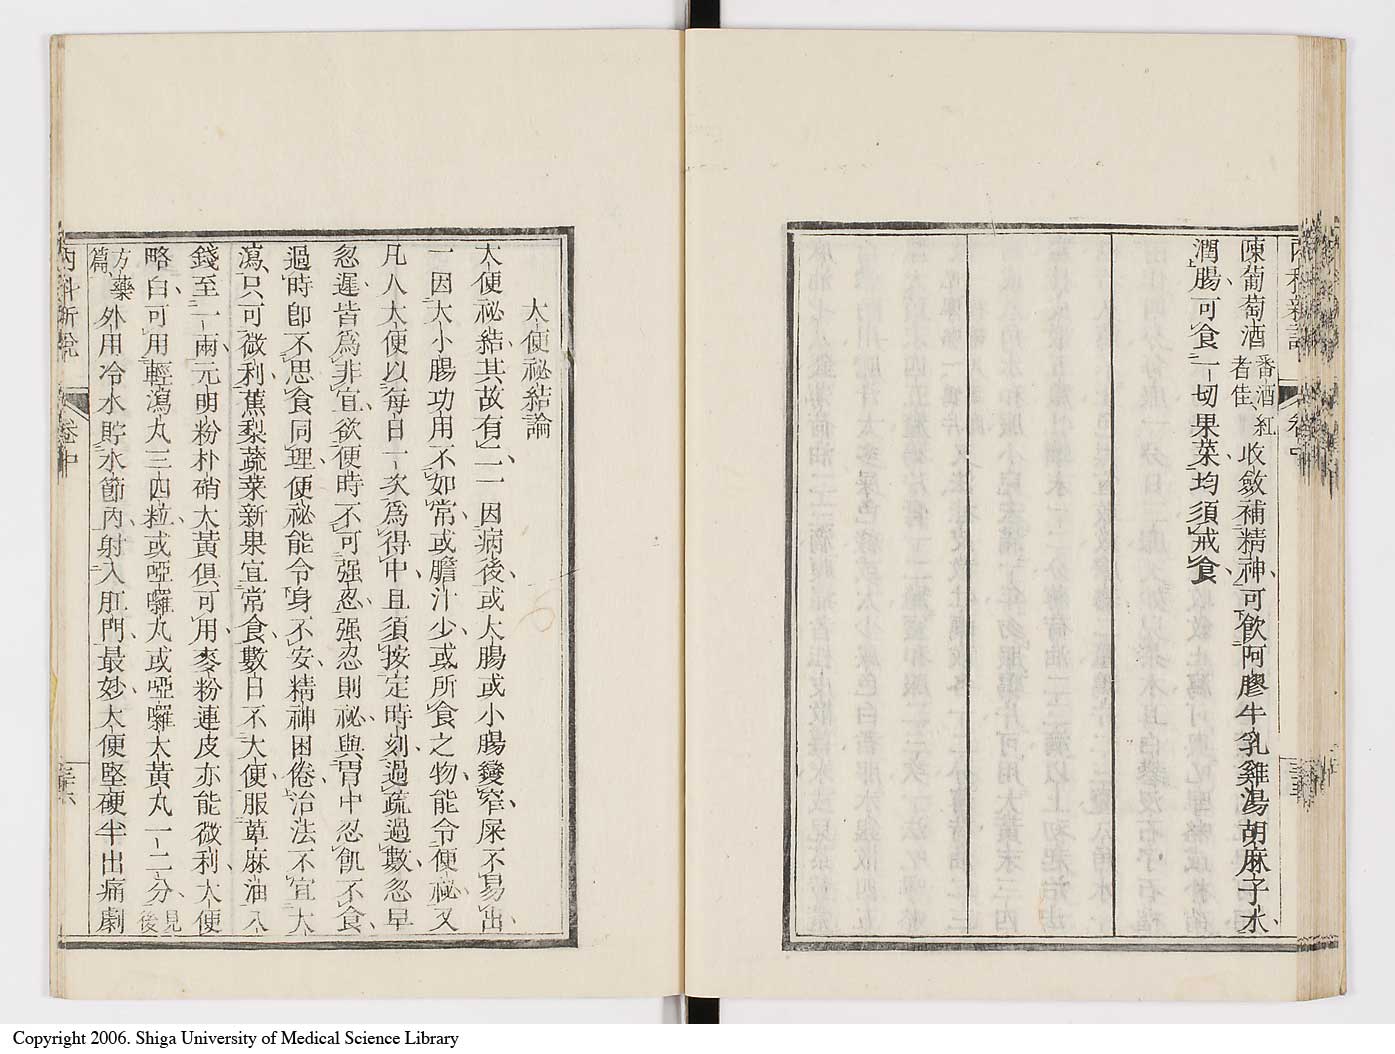 內科新說
卷中
三十五
陳葡萄酒番酒紅者佳收斂補精神可飲阿膠牛乳雞湯胡麻子水
潤腸可食一切果菜均須戒食
大便祕結論
大便祕結其故有二一因病後或大腸或小腸變窄屎不易出
一因大小腸功用不如常或膽汁少或所食之物能令便祕又
凡人大便以每日一次為得中且須按定時刻過疏過數忽早
忽遲皆為非宜欲便時不可强忍强忍則祕與胃中忍飢不食
過時卽不思食同理便祕能令身不安精神困倦治法不宜大
瀉只可微利蕉梨蔬菜新果宜常食數日不大便服萆麻油入
錢至一兩元明粉朴硝大黃俱可用麥粉連皮亦能微利大便
略白可用輕瀉丸三四粒或啞囉丸或啞囉大黃丸一二分見後
方藥篇外用冷水貯水節內射入肛門最妙大便堅硬半出痛劇
內科新說
卷中
三十六
Copyright 2006. Shiga University of Medical Science Library